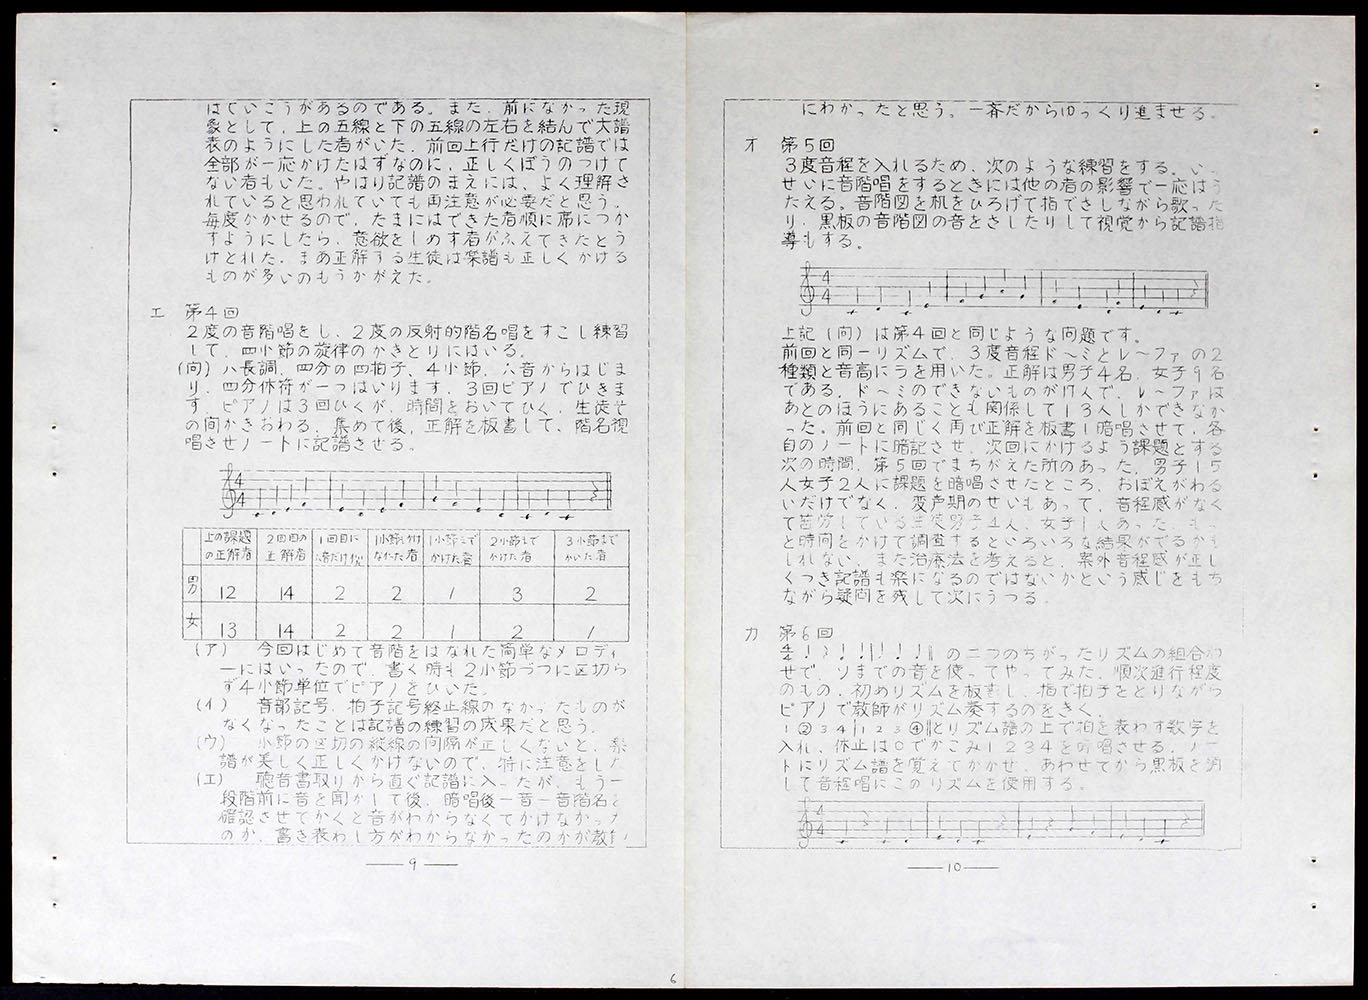 はていこうがあるのである。また、前になかった現
象として、上の五線と下の五線の左右を結んで大譜
表のようにした者がいた。前回上行だけの記譜では
全部が一応かけたはずなのに、正しくぼうのつけて
ない者もいた。やはり記譜のまえには、よく理解さ
れていると思われていても再注意が必要だと思う。
毎度かかせるので、たまにはできた者順に席につか
すようにしたら、意欲をしめす者がふえてきたとう
けとれた。まあ正解する生徒は楽譜も正しくかける
ものが多いのもうかがえた。
エ 第4回
2度の音階唱をし、2度の反射的階名唱をすこし練習
して、四小節の旋律のかきとりにはいる。
(向)ハ長調、四分の四拍子、4小節、ハ音からはじま
り、四分休符が一つはいります。3回ピアノでひきま
す。ピアノは3回ひくが、時間をおいてひく。生徒そ
の間かきおわる。集めて後、正解を板書して、階名視
唱させノートに記譜させる。
4
4
上の課題の正解者 2回目の正解者 1回目に 1小節しかけなかった者 1小節までかけた者 2小節までかけた者 3小節までかいた者
男 12 14 2 2 1 3 2
女 13 14 2 2 1 2 1
(ア) 今回はじめて音階をはなれた簡単なメロディ
ーにはいったので、書く時も2小節づつに区切ら
ず4小節単位でピアノをひいた。
(イ) 音部記号、拍子記号終止線のなかったものが
なくなったことは記譜の練習の成果だと思う。
(ウ) 小節の区切の縦線の間隔が正しくないと、楽
譜が美しく正しくかけないので、特に注意をした
(エ) 聴音書取りから直ぐ記譜に入ったが、もう一
段階前に音を聞かして後、暗唱後一音一音階名を
確認させてかくと音がわからなくてかけなかった
のか、書き表わし方がわからなかったのかが教師
9
にわかったと思う。一斉だからゆっくり進ませる。
オ 第5回
3度音程を入れるため、次のような練習をする。い
せいに音階唱をするときには他の者の影響で一応はう
たえる。音階図を机をひろげて指でさしながら歌った
り、黒板の音階図の音をさしたりして視覚から記譜指
導もする。
4
4
上記(向)は第4回と同じような問題です。
前回と同一リズムで、3度音程ド〜ミとレ〜ファの2
種類と音高にラを用いた。正解は男子4名、女子9名
である。ド〜ミのできないものが17人で、レ〜ファは
あとのほうにあることも関係して13人しかできなか
った。前回と同じく再び正解を板書し暗唱させて、各
自のノートに暗記させ、次回にかけるよう課題とする
次の時間、第5回でまちがえた所のあった、男子15
人女子2人に課題を暗唱させたところ、おぼえがわる
いだけでなく、変声期のせいもあって、音程感がなく
て苦労している生徒男子4人、女子1人あった。も
と時間をかけて調査するといろいろな結果がでるかも
しれない。また治療法を考えると、案外音程感が正し
くつき記譜も楽になるのではないかという感じをもち
ながら疑問を残して次にうつる。
カ 第6回
の二つのちがったリズムの組合わ
せで、ソまでの音を使ってやってみた。順次進行程度
のもの。初めリズムを板書し、指で拍子をとりながら
ピアノで教師がリズム奏するのをきく。
1②34|123④‖とリズム譜の上で拍を表わす数字を
入れ、休止は○でかこみ1234を唱させる。ノー
トにリズム譜を覚えてかかせ、あわせてから黒板を消
して音程唱にこのリズムを使用する。
4
4
10
6